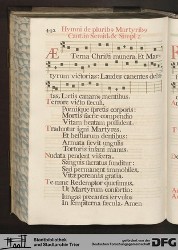 Hymni de pluribus Martyribus
Tema Christi munera. Et Mar-
tyrum victorias: Laudes canentes debi-
tas, Lætis canamus mentibus.
Terrore victo sæculi,
Pœnisque spretis corporis:
Mortis sacræ compendio
Vitam beatam possident.
Traduntur igni Martyres,
Et bestiarum dentibus:
Armata sævit ungulis
Tortoris insani manus.
Nudata pendent viscera,
Sanguis sacratus funditur:
Sed permanent immobiles,
Vitæ perennis gratia.
Te nunc Redemptor quæsumus,
Ut Martyrum consortio:
Iungas precantes servulos
In sempiterna sæcula. Amen.
Stadtbibliothek
und Stadtarchiv Trier
gefördert von der
Deutschen Forschungsgemeinschaft
DFG